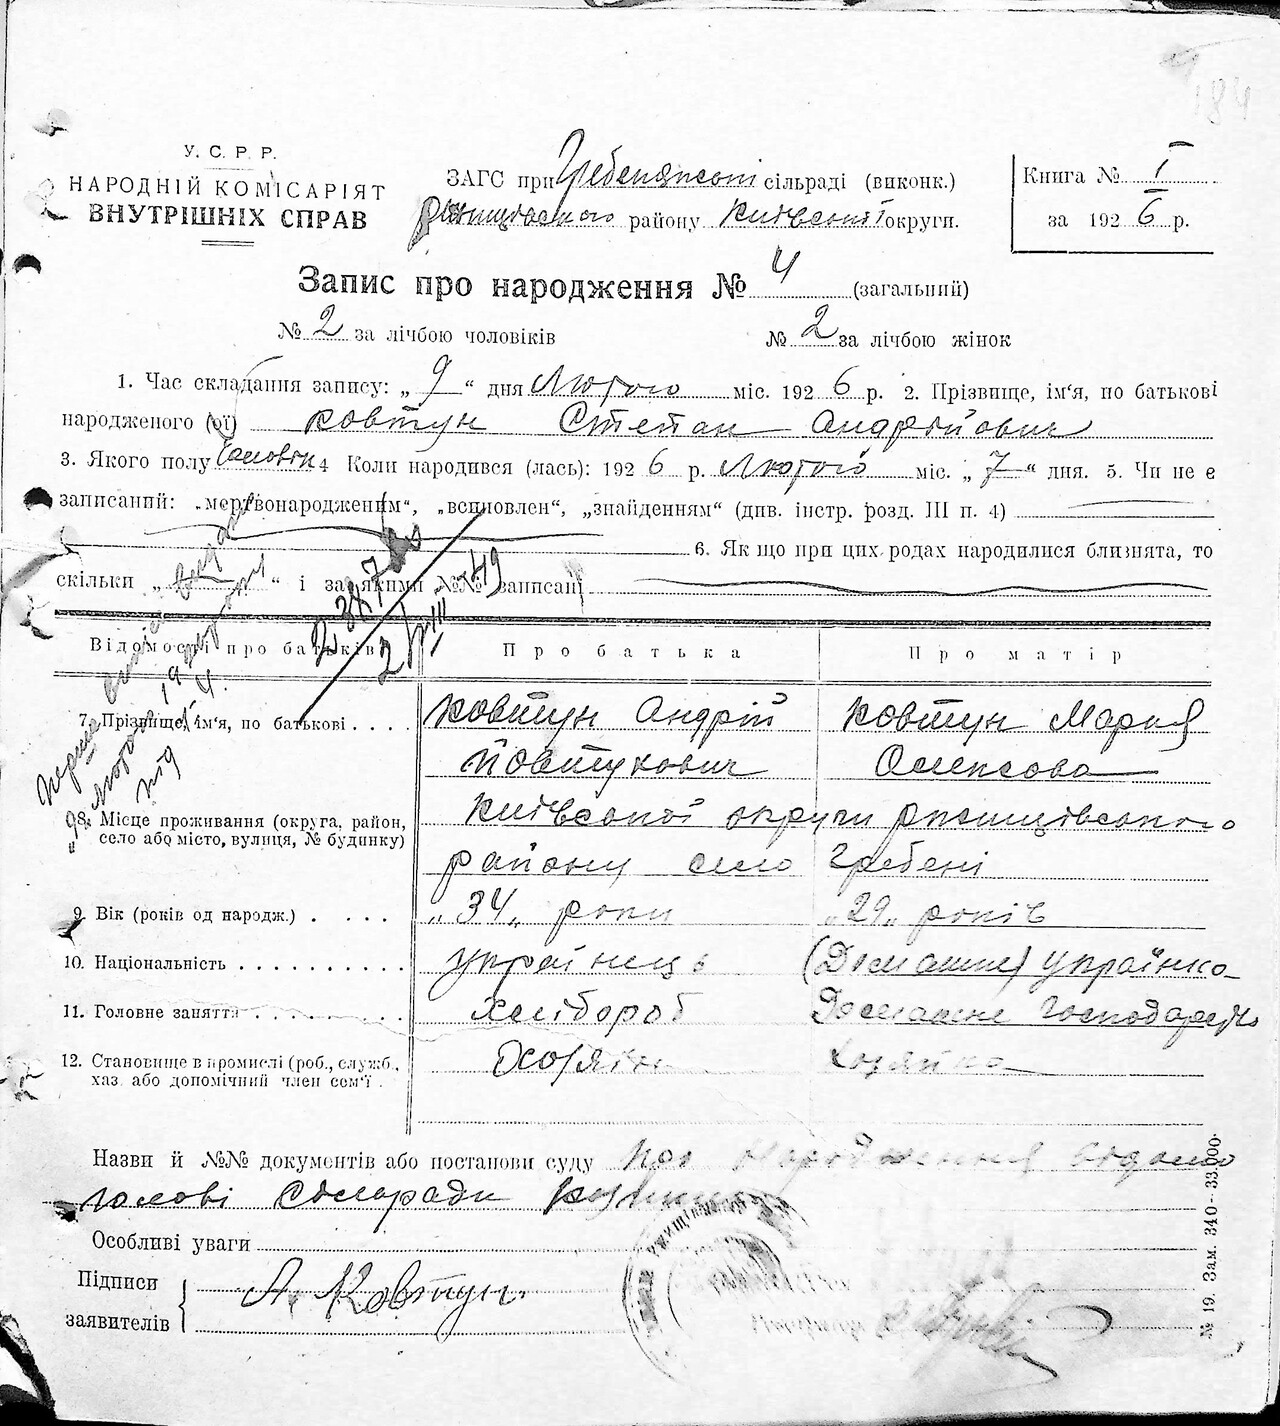 184
У. С. Р. Р.
НАРОДНІЙ КОМІСАРІЯТ
ВНУТРІШНІХ СПРАВ
ЗАГС при Гребенянській сільраді (виконк.)
Ржищівського району Київської округи.
Книга № I
за 1926 р.
Запис про народження № 4 (загальний)
№ 2 за лічбою чоловіків № 2 за лічбою жінок
1. Час складання запису: „ 9 “ дня Лютого міс. 1926 р. 2. Прізвище, ім‘я, по батькові
народженого (ої) Ковтун Степан Андрійович
3. Якого полу Чоловік 4 Коли народився (лась): 1926 р. Лютого міс. „ 7 “ дня. 5. Чи не є
записаний: „мертвонародженим“, „всиновлен“, „знайденням“ (див. інстр. розд. III п. 4)
6. Якщо при цих родах народилися близнята, то
скільки „ “ і за якими №№ записані
2387
2/VIII-49
Відомості про батьків Про батька Про матір
7. Прізвище, ім‘я, по батькові . . . . Ковтун Андрій Ковтун Мария
Йовтухович Олексова
8. Місце проживання (округа, район, Київської округи Ржищівського
село або місто, вулиця, № будинку) району село Гребені
9. Вік (років од народж.) . . . . „34„ роки „29„ років
10. Національність . . . . . . . . . . українець (Домашне) українка
11. Головне заняття . . . . . . . . . хлібороб Домашне Господарство
12. Становище в промислі (роб., служб., Хозяїн Хозяйка
хаз. або допомічний член сем‘ї .
Назви й №№ документів або постанови суду про народження відомо
голові сільради
Особливі уваги
Підписи
заявителів
А. Ковтун.
№ 19. Зам. 340—33.000.